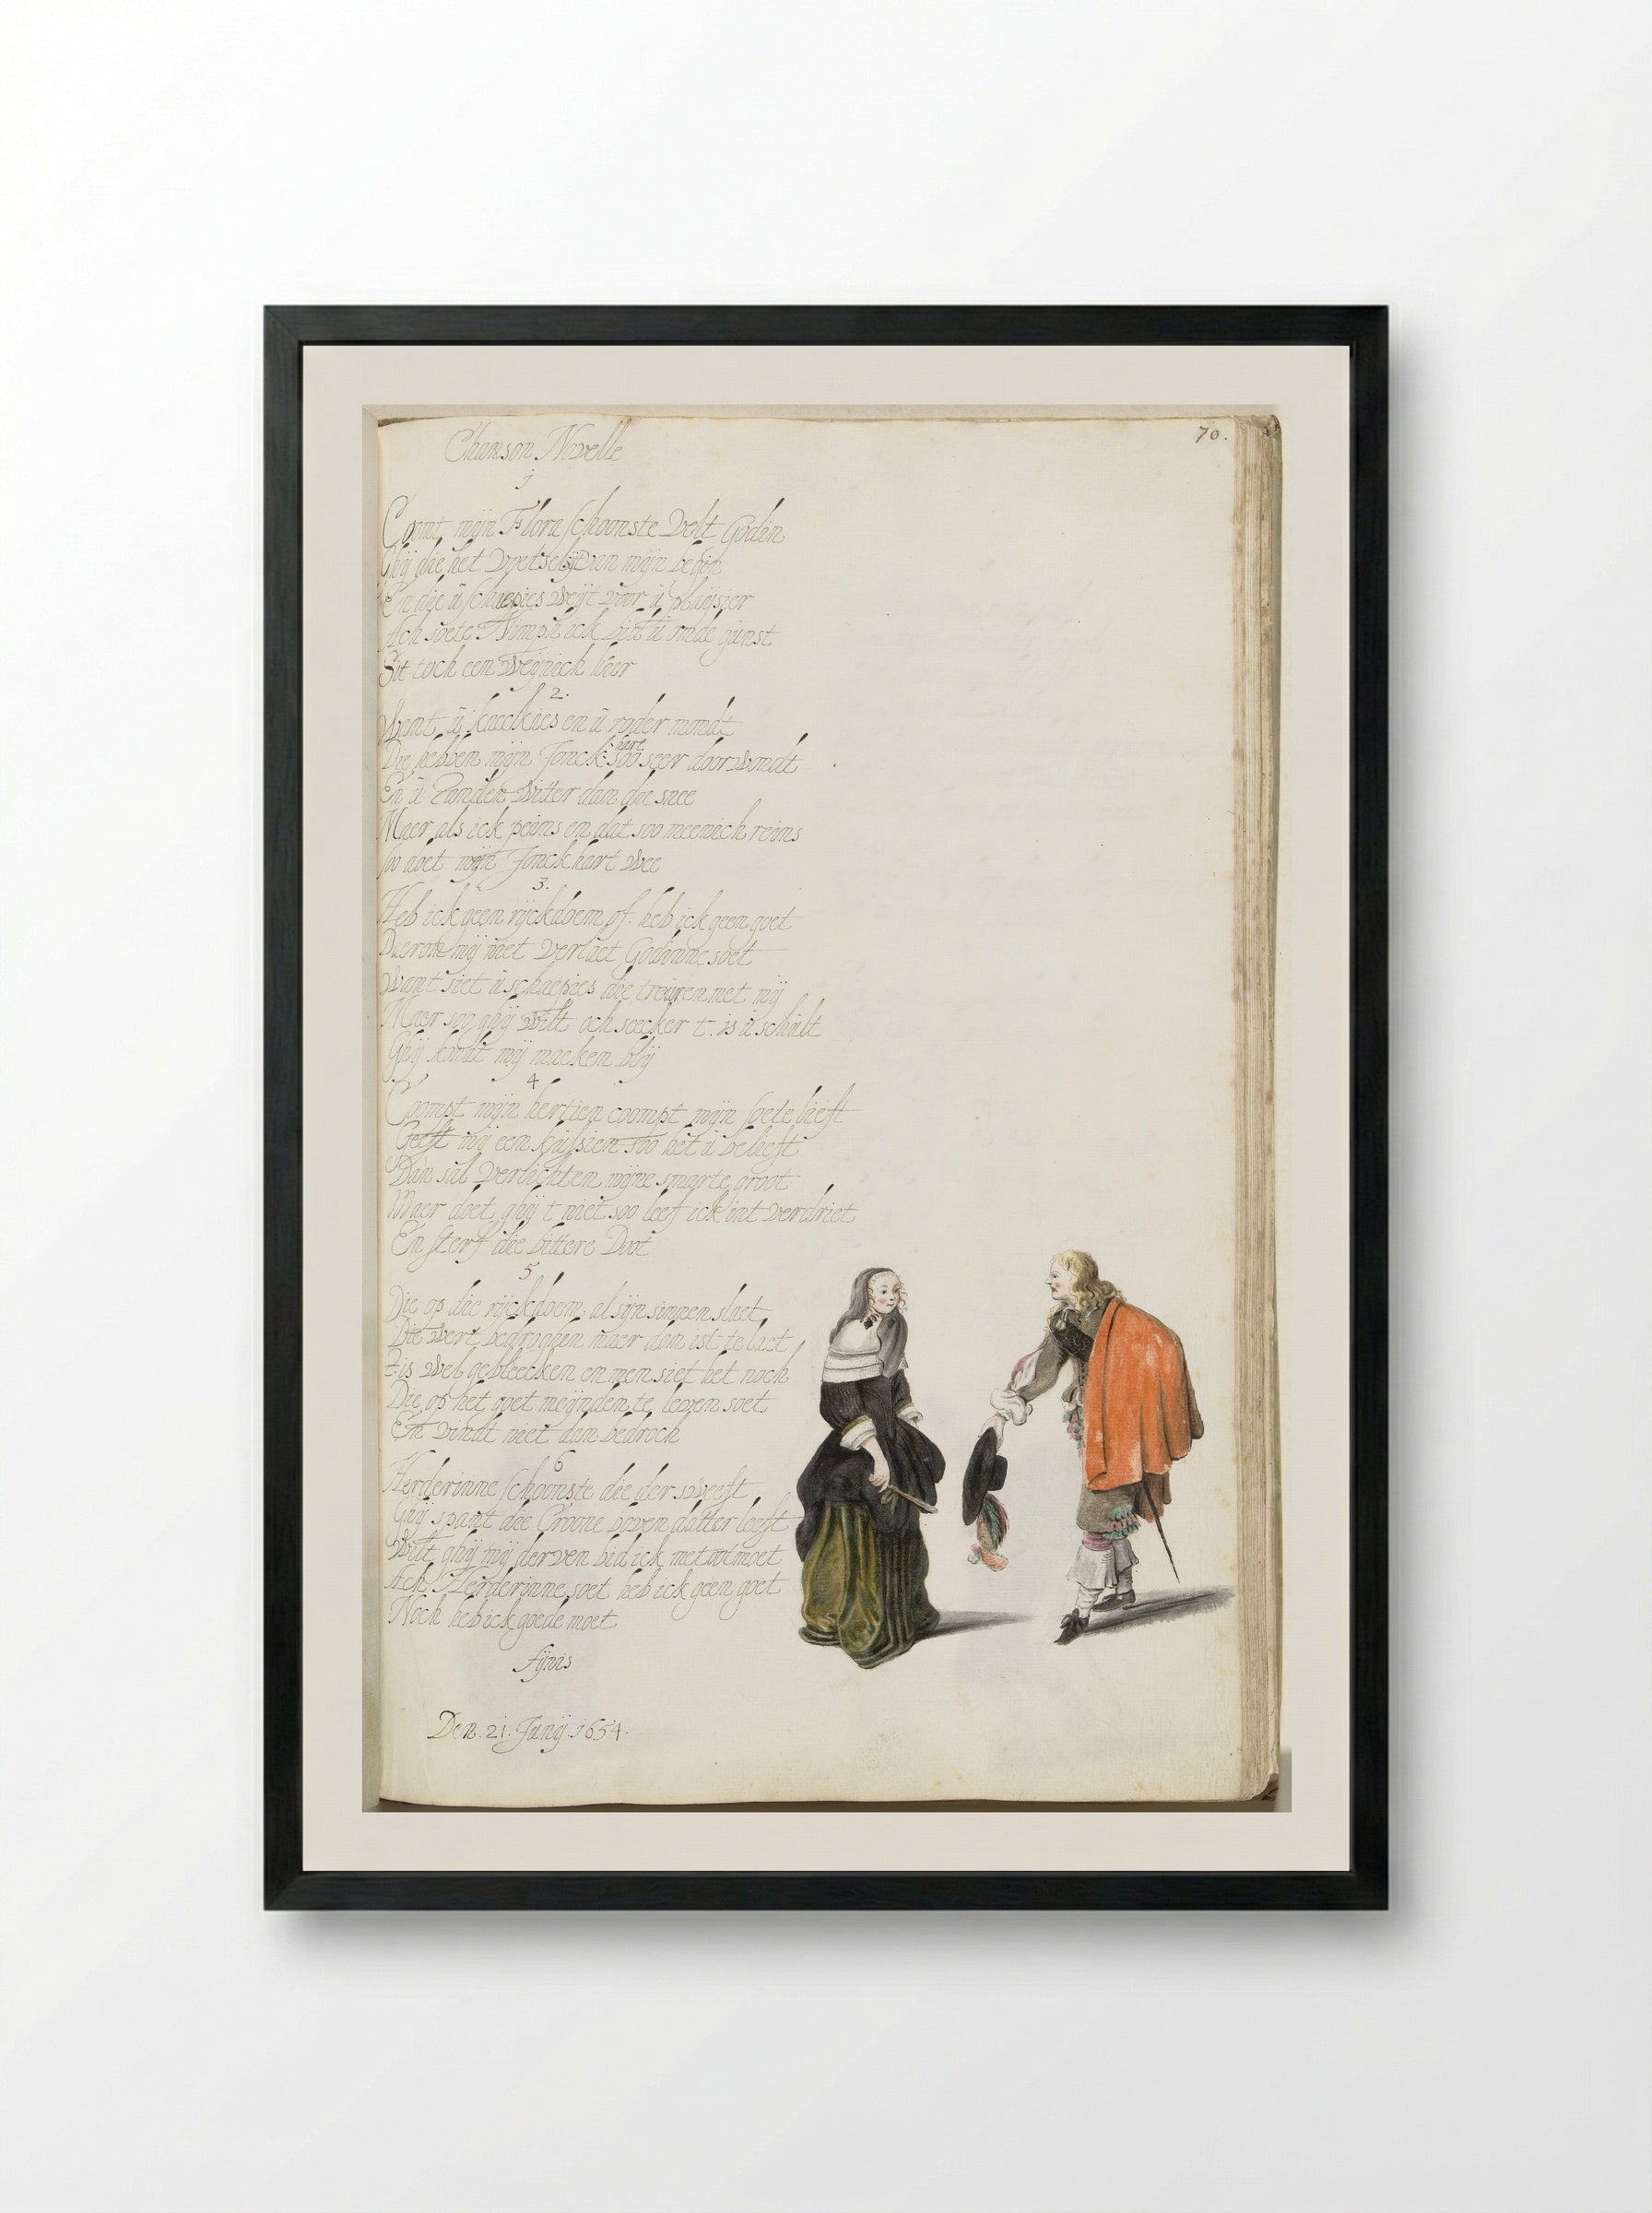 Chanson Novelle
70.
1
Coomt mijn Flora schoonste Velt Godin
Ghij die het van mijn begin
En die ū schaepies weijt voor ū plaijsier
Ach soete Nimph ick bit ū onde gunst
Sit toch een Weijnich heer
2.
Want ū kaeckies en ū roder mondt
Die hebben mijn Jonck hart soo seer doorwondt
En ū Tanden Witter dan die snee
Maer als ick peins en dat soo meenich reins
soo doet mijn Jonck hart Wee
3.
Heb ick geen rijckdoem of heb ick geen goet
Daerom mij niet Verlaet Godinne soet
Want siet ū schaepies die treuren met mij
Maer soo ghij Wilt och seecker t. is ū schult
Ghij kondt mij maeken blij
4
Coompt mijn hertien coompt mijn soete lieft
Geeft mij een kussien soo het ū belieft
Dan sal Verlichten mijne smarte groot
Maer doet ghij t niet soo leef ick int Verdriet
En sterf die bittere Doot
5
Die op die rijckdoem al sijn sinnen slaet
Die Wert bedroghen maer dan ist te laet
T is Wel gebleecken en men siet het noch
Die op het goet meijnden te leven soet
En Vindt niet dan bedroch
6
Herderinne schoonste die der sweeft
Ghij spant dee Croone boven datter leeft
Wilt ghij mij derven bid ick met ootmoet
Ach Herderinne soet heb ick geen goet
Noch heb ick goede moet
Fijnis
Den. 21. Junij. 1654.